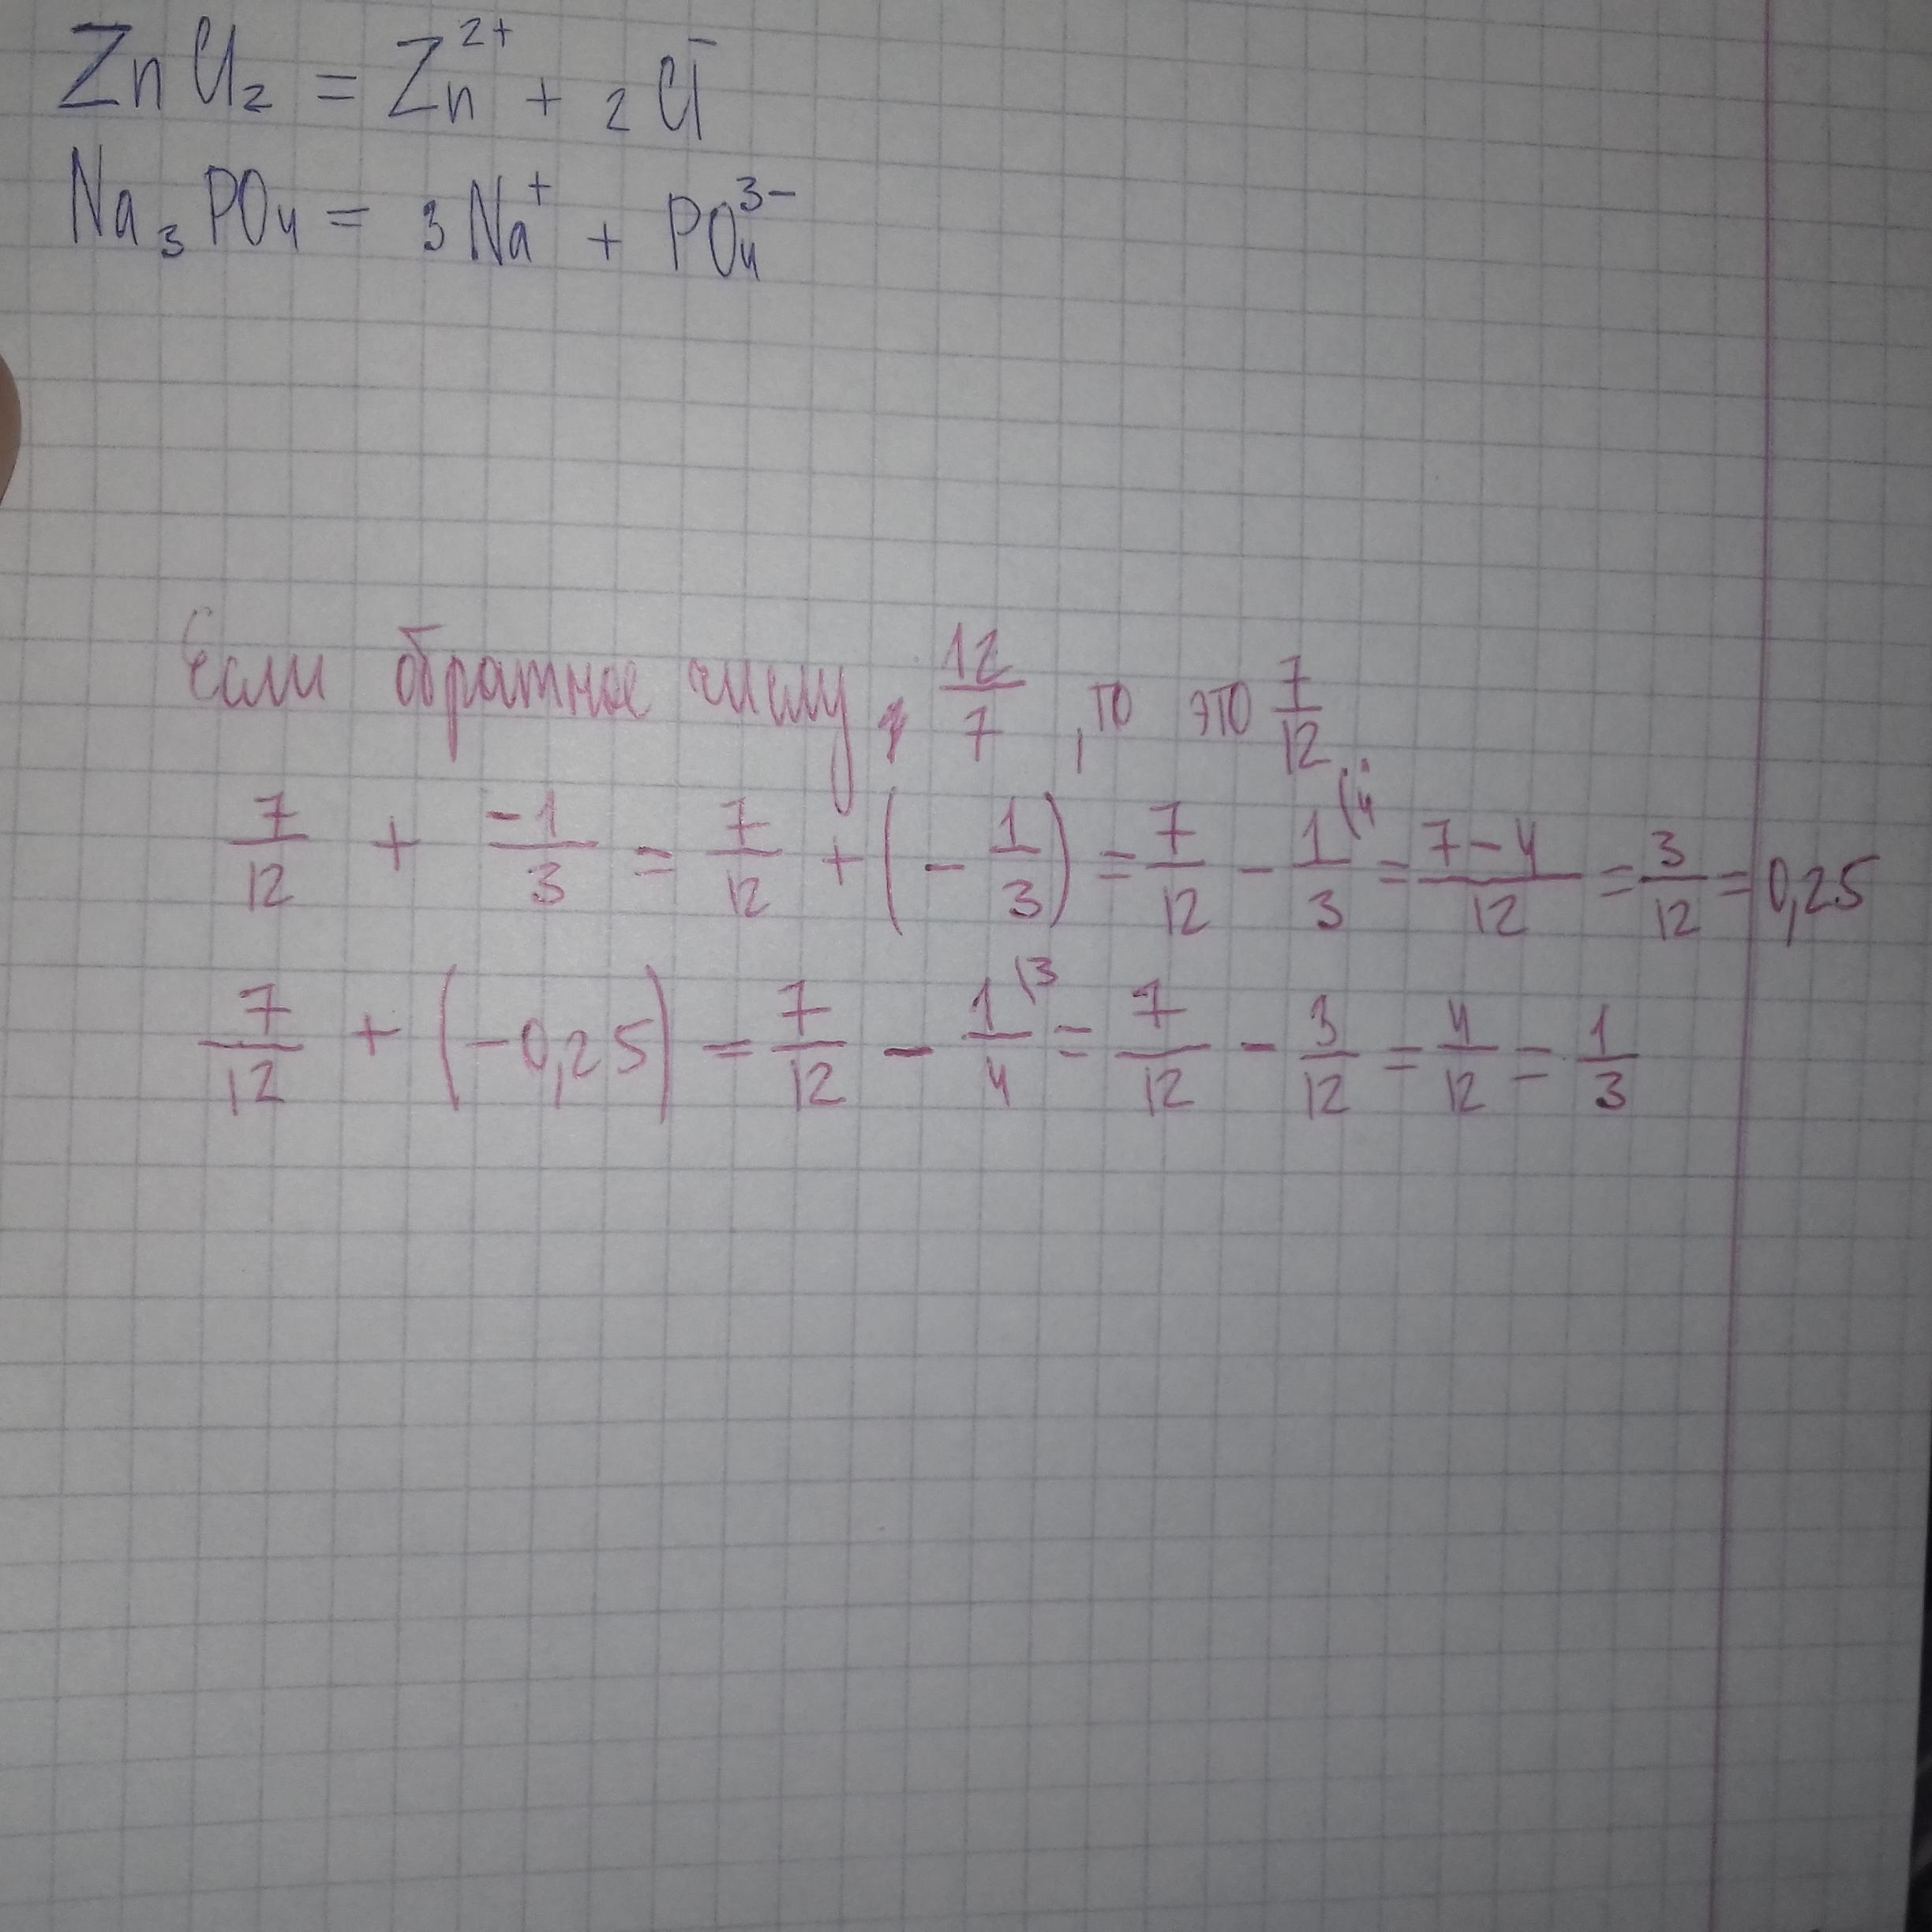 ZnCl₂ = Zn²⁺ + 2Cl⁻
Na₃PO₄ = 3Na⁺ + PO₄³⁻
Если обратное числу 12/7, то это 7/12
7/12 + -1/3 = 7/12 + (-1/3) = 7/12 - 1/3 (4 = 7-4/12 = 3/12 = 0,25
7/12 + (-0,25) = 7/12 - 1/4 \3 = 7/12 - 3/12 = 4/12 = 1/3